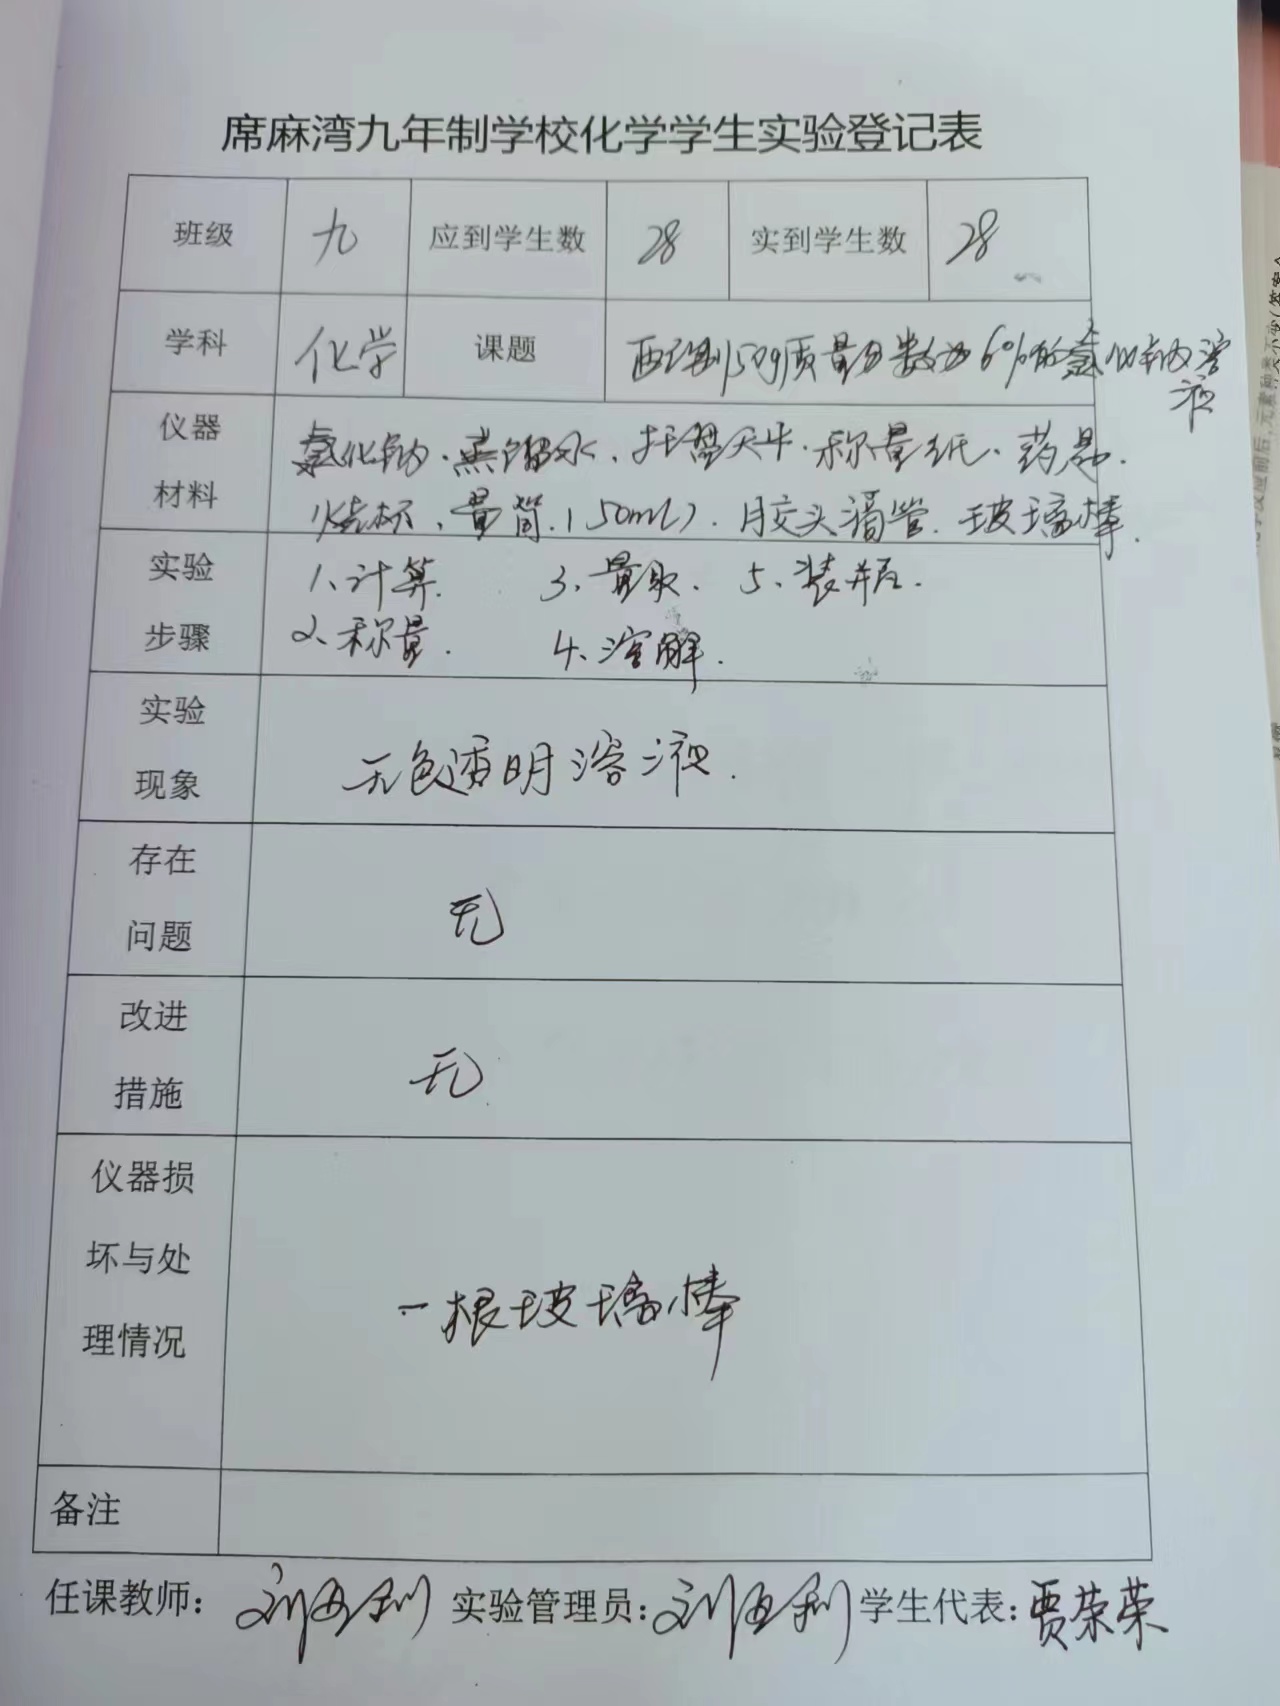 席麻湾九年制学校化学学生实验登记表
班级 九 应到学生数 28 实到学生数 28
学科 化学 课题 配制50g质量分数为6%的氯化钠溶
液
仪器 氯化钠、蒸馏水、托盘天平、称量纸、药匙、
材料 烧杯、量筒(50mL)、胶头滴管、玻璃棒.
实验 1、计算. 3、量取. 5、装瓶.
步骤 2、称量. 4、溶解.
实验
现象 无色透明溶液.
存在
问题 无
改进
措施 无
仪器损
坏与处
理情况 一根玻璃棒
备注
任课教师: 实验管理员: 学生代表: 贾荣荣